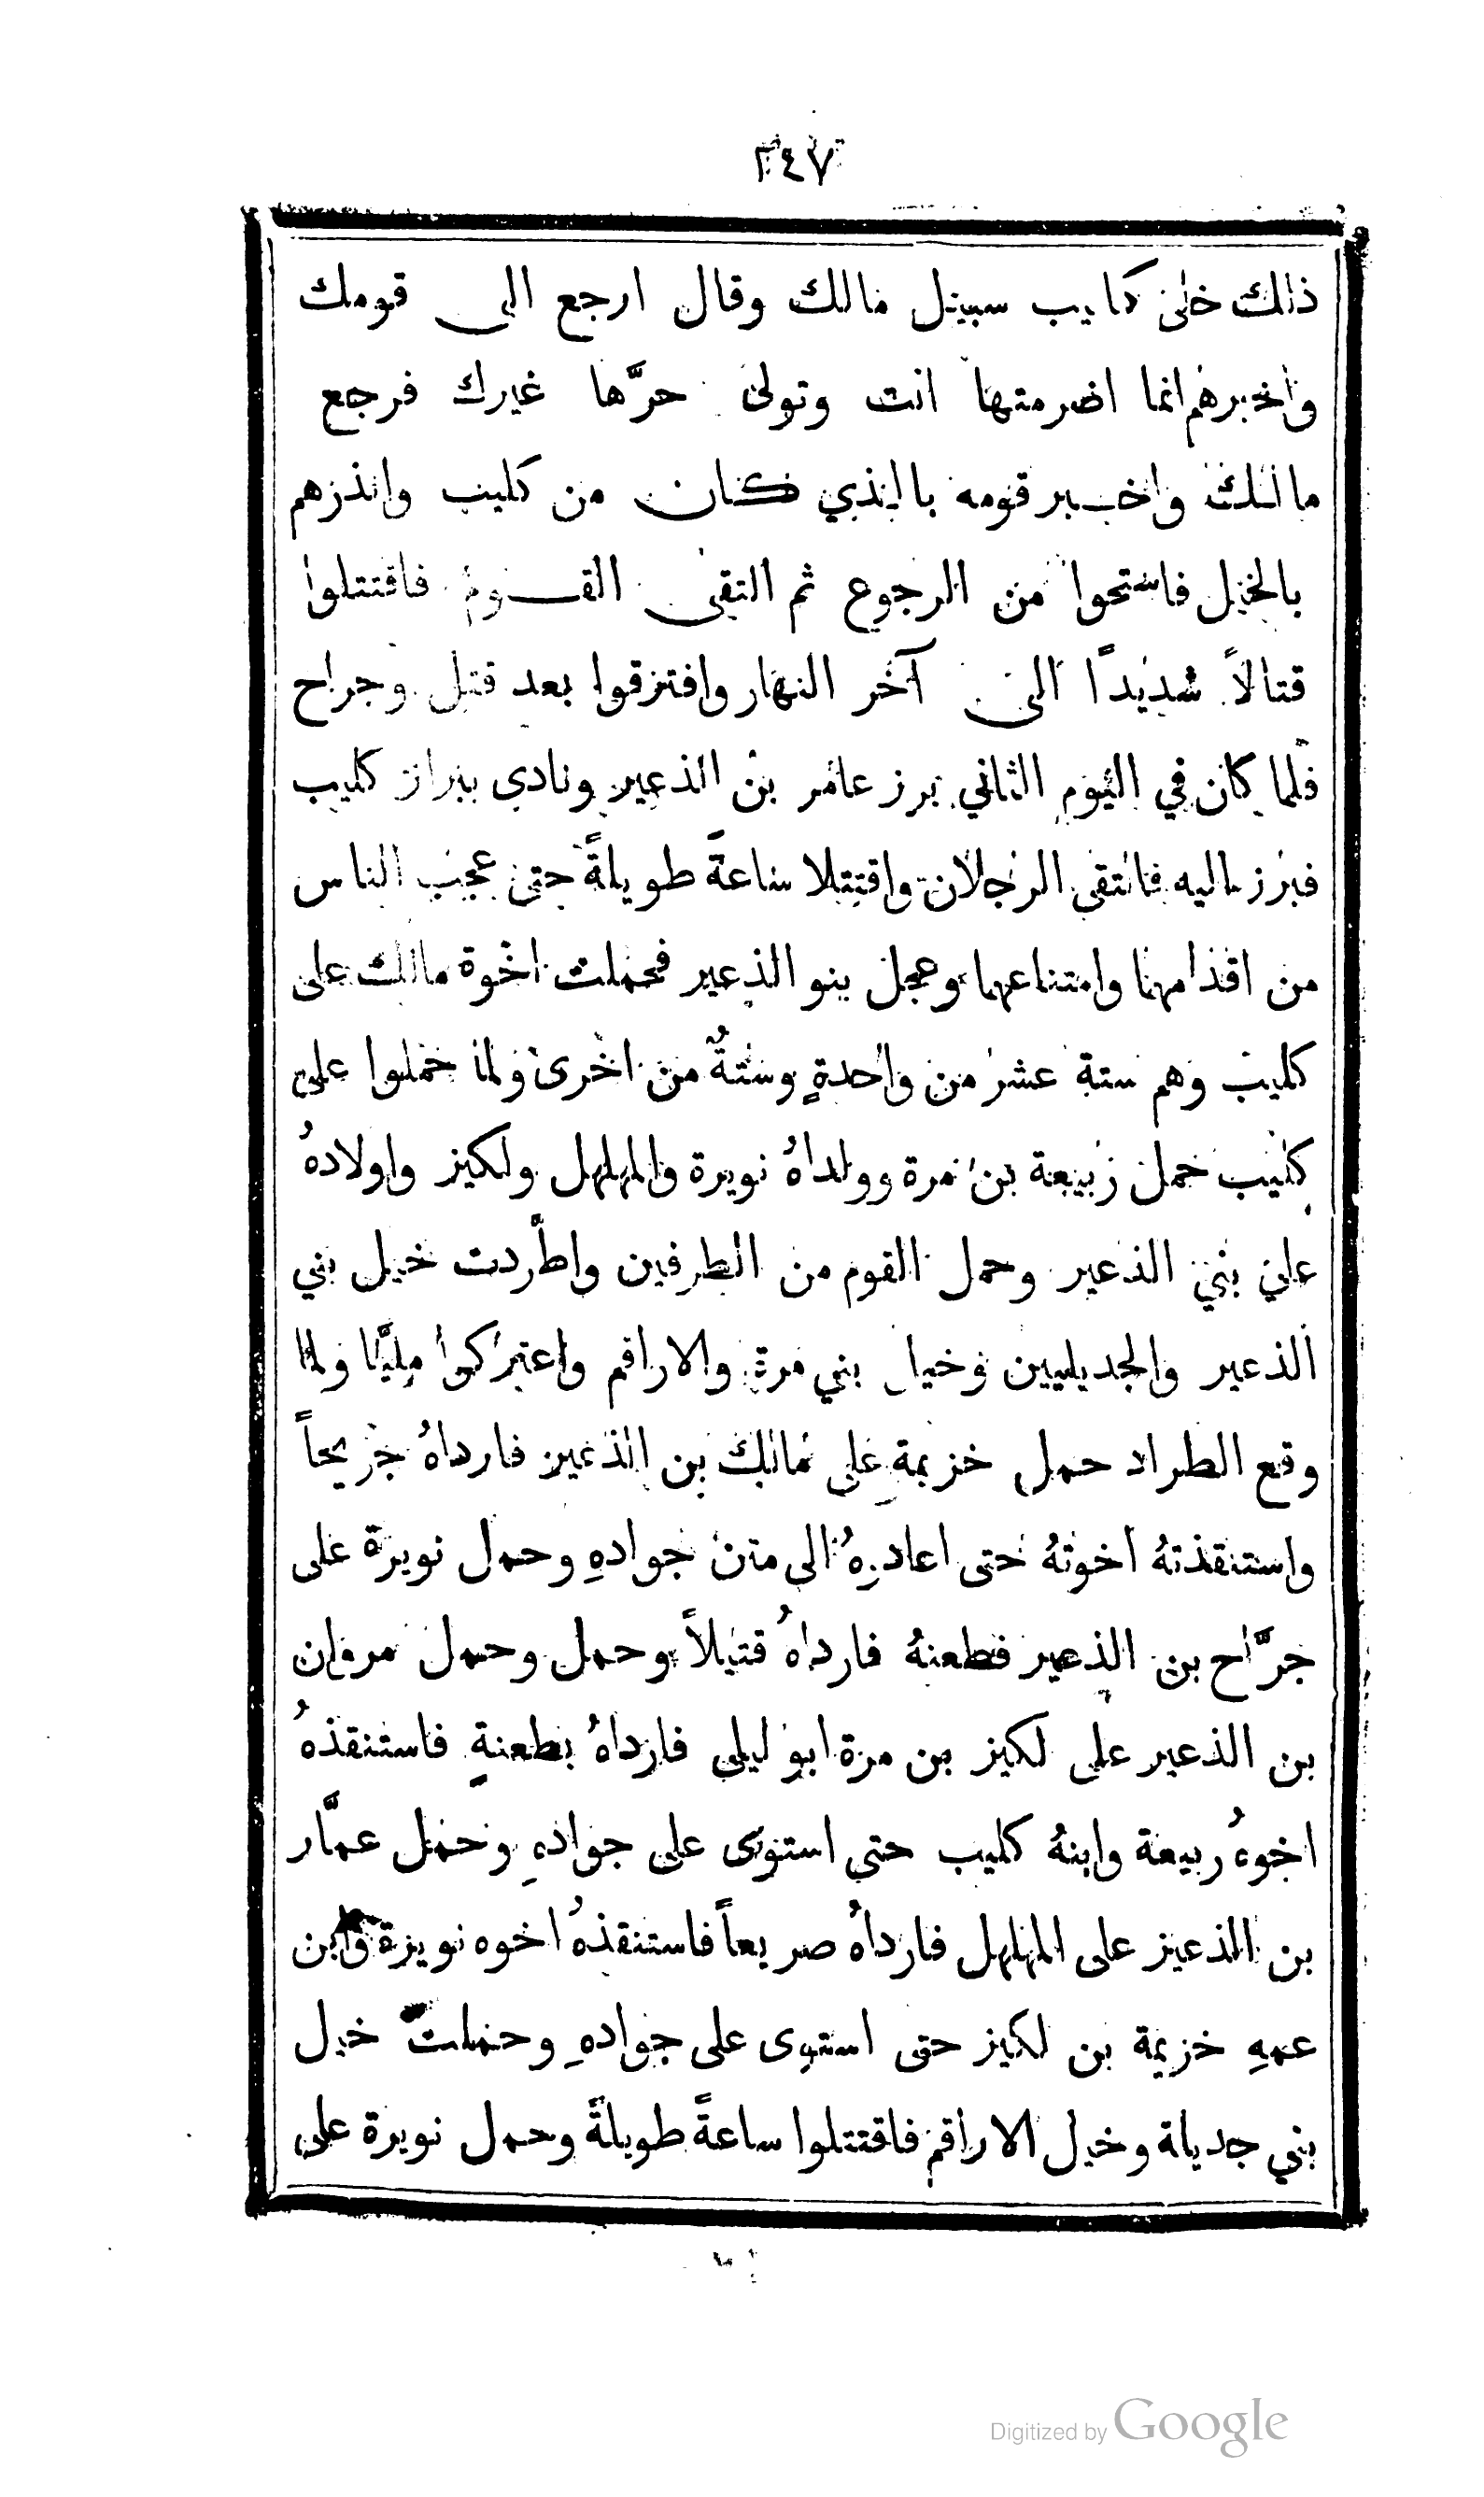 ٢٤٧
ذلك خلى كليب سبيل مالك وقال ارجع الى قومك
واخبرهم انما اضرمتها انت وتولى حرَّها غيرك فرجع
مالك واخبر قومه بالذي كان من كليب وانذرهم
بالخيل فاستحوا من الرجوع ثم التقى القوم فاقتتلوا
قتالاً شديدًا الى آخر النهار وافترقوا بعد قتل وجراح
فلما كان في اليوم الثاني برز عامر بن الذعير ونادى ببراز كليب
فبرز اليه فالتقى الرجلان واقتتلا ساعةً طويلةً حتى عجب الناس
من اقدامهما وامتناعهما وعجل بنو الذعير فحملت اخوة مالك على
كليب وهم ستة عشر من واحدةٍ وستةٌ من اخرى ولما حملوا على
كليب حمل ربيعة بن مرة وولداهُ نويرة والمهلهل ولكيز واولادهُ
على بني الذعير وحمل القوم من الطرفين واطَّردت خيل بني
الذعير والجديليين وخيل بني مرة والاراقم واعتركوا مليًّا ولما
وقع الطراد حمل خزيمة على مالك بن الذعير فارداهُ جريحاً
واستنقذتهُ اخوتهُ حتى اعادوهُ الى متن جوادهِ وحمل نويرة على
جرَّاح بن الذعير فطعنهُ فارداهُ قتيلاً وحمل وحمل مروان
بن الذعير على لكيز بن مرة ابو ليلى فارداهُ بطعنةٍ فاستنقذهُ
اخوهُ ربيعة وابنهُ كليب حتى استوى على جوادهِ وحمل عمَّار
بن الذعير على المهلهل فارداهُ صريعاً فاستنقذهُ اخوه نويرة وابن
عمهِ خزيمة بن لكيز حتى استوى على جوادهِ وحملت خيل
بني جديلة وخيل الاراقم فاقتتلوا ساعةً طويلةً وحمل نويرة على
Digitized by Google